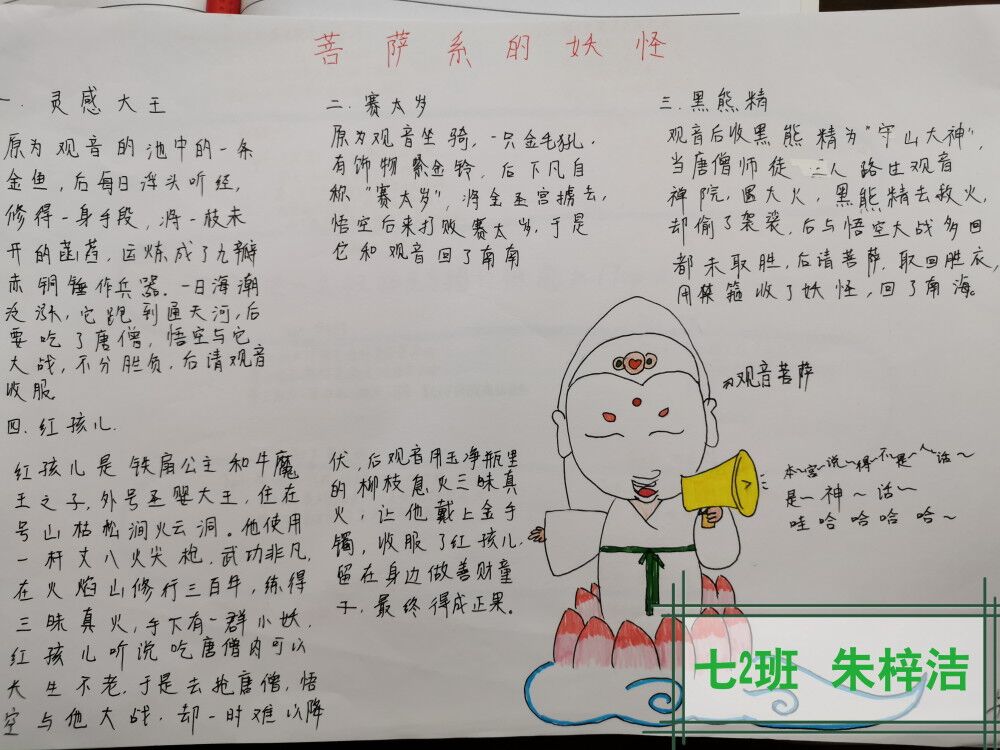 菩萨系的妖怪
一.灵感大王
原为观音的池中的一条
金鱼,后每日浮头听经,
修得一身手段,将一枝未
开的菡萏,运炼成了九瓣
赤铜锤作兵器.一日海潮
泛涨,它跑到通天河,后
要吃了唐僧,悟空与它
大战,不分胜负,后请观音
收服
二.赛太岁
原为观音坐骑,一只金毛犼.
有饰物紫金铃,后下凡自
称“赛太岁”,将金圣宫掳去,
悟空后来打败赛太岁,于是
它和观音回了南南
三.黑熊精
观音后收黑熊精为“守山大神”,
当唐僧师徒二人路生观音
禅院,遇大火,黑熊精去救火,
却偷了袈裟,后与悟空大战多回
都未取胜,后请菩萨,取回胜衣,
用禁箍收了妖怪,回了南海。
四.红孩儿.
红孩儿是铁扇公主和牛魔
王之子,外号圣婴大王,住在
号山枯松涧火云洞。他使用
一杆丈八火尖枪,武功非凡,
在火焰山修行三百年,练得
三昧真火,手下有一群小妖,
红孩儿听说吃唐僧肉可以
长生不老,于是去抢唐僧,悟
空与他大战,却一时难以降
伏,后观音用玉净瓶里
的柳枝息火三昧真
火,让他戴上金手
镯,收服了红孩儿,
留在身边做善财童
子,最终得成正果。
观音菩萨
本~宫~说~得~不~是~人~话~
是~神~话~
哇哈哈哈哈~
七2班 朱梓洁